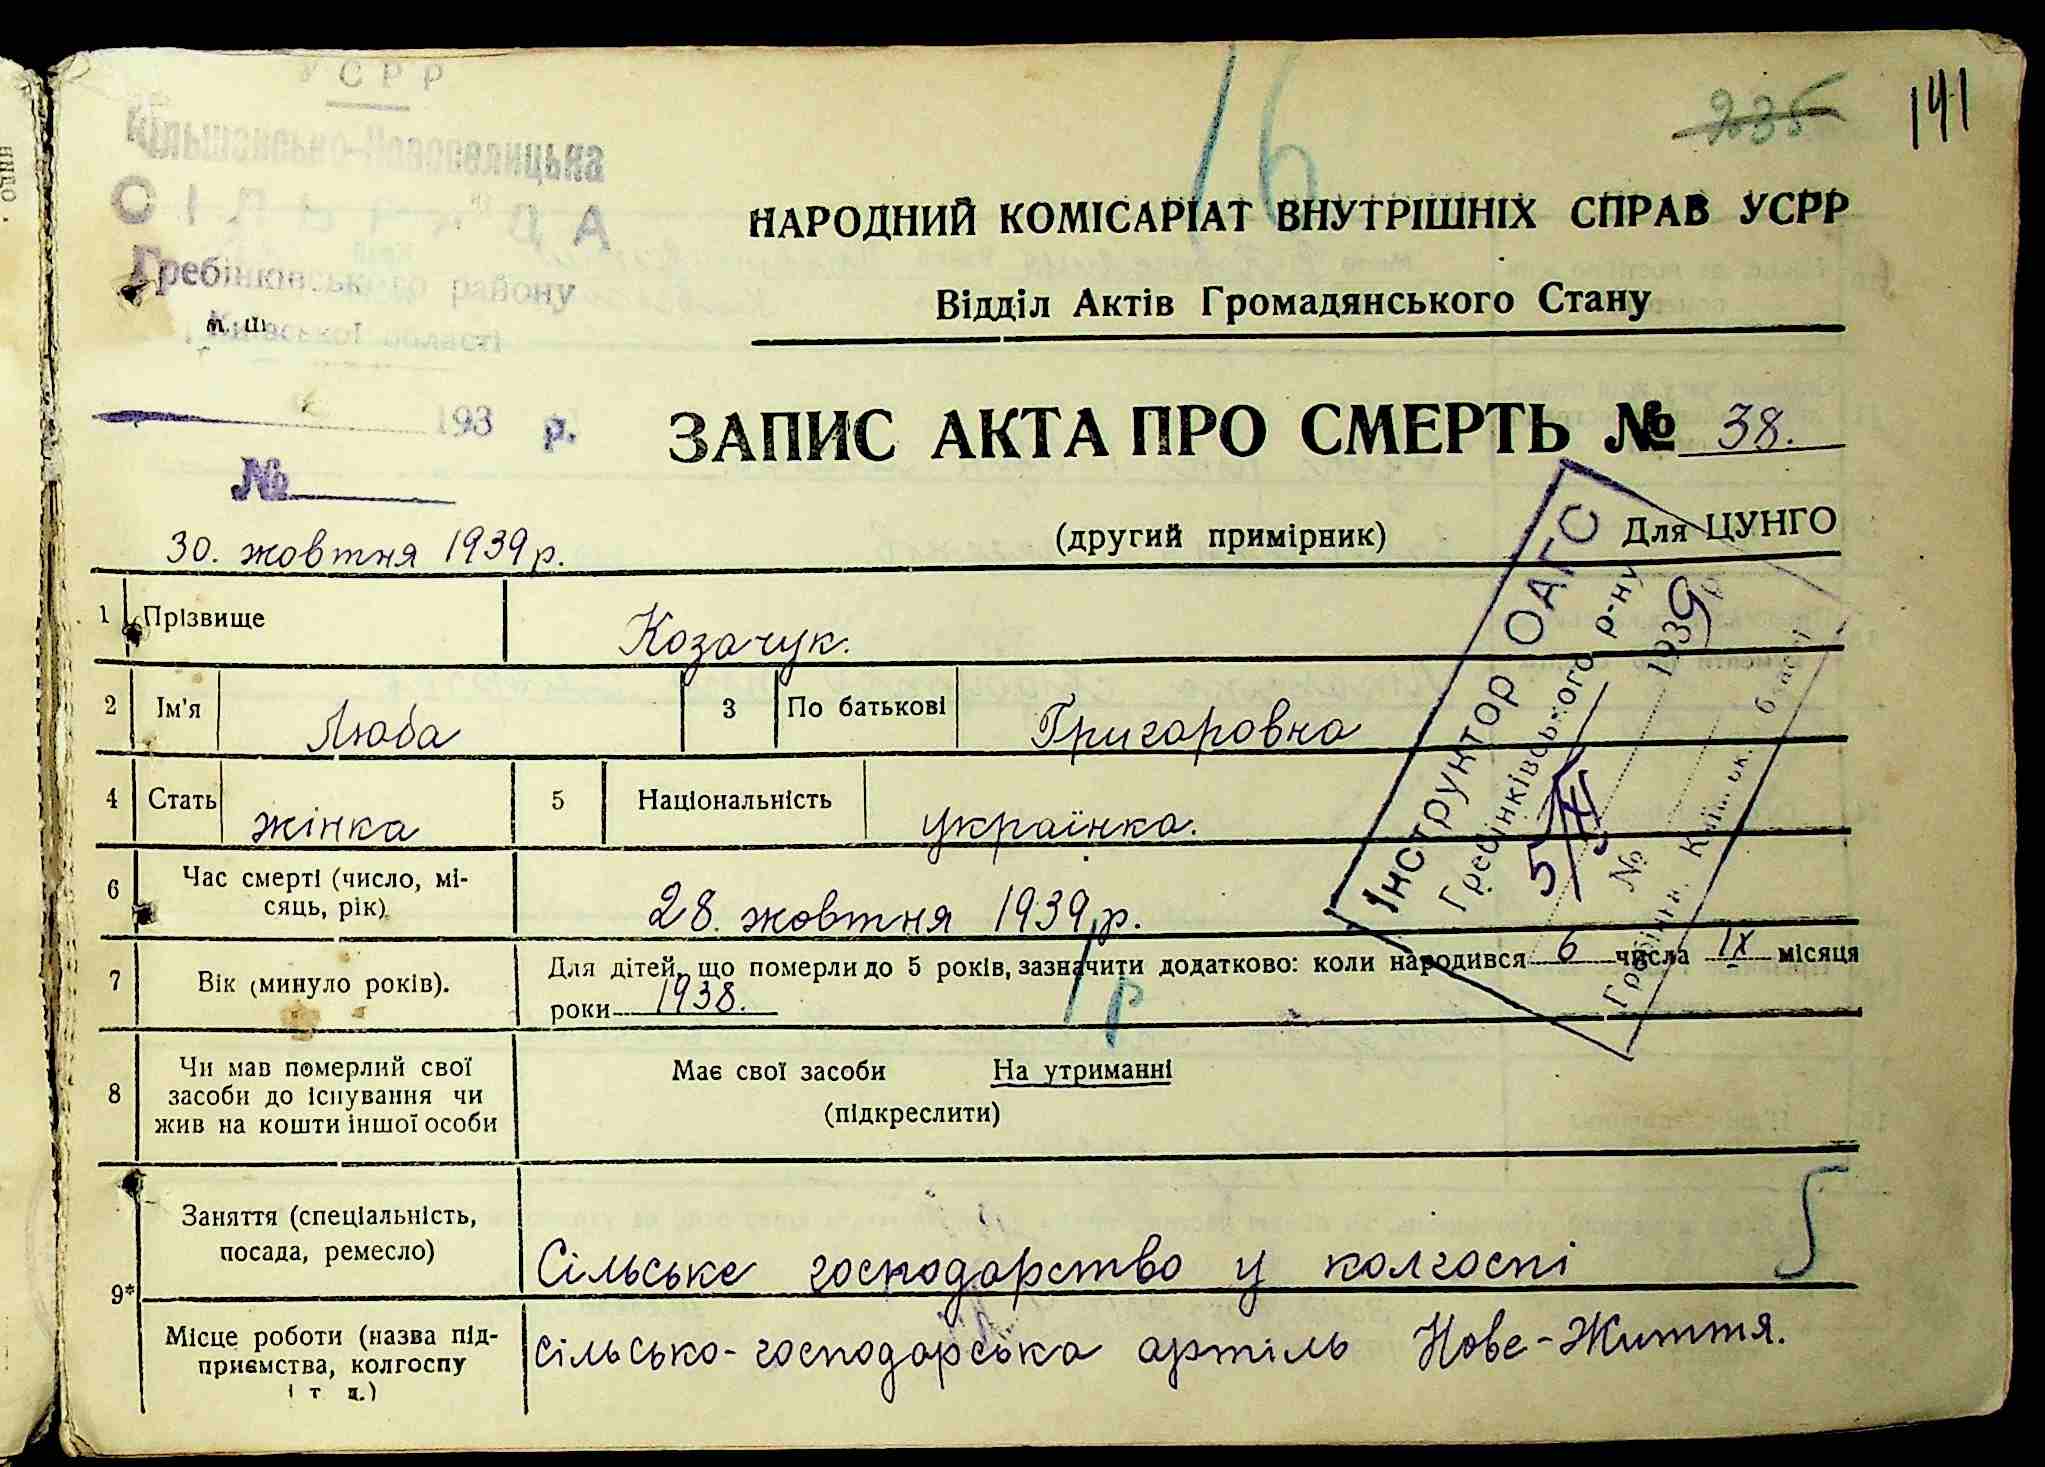 16
235
141
УСРР
Кільшансько-Новоселицька
СІЛЬРАДА
Гребінківського району
Київської області
193 р.
№
НАРОДНИЙ КОМІСАРІАТ ВНУТРІШНІХ СПРАВ УСРР
Відділ Актів Громадянського Стану
ЗАПИС АКТА ПРО СМЕРТЬ № 38.
30. жовтня 1939 р.
(другий примірник) Для ЦУНГО
Інструктор ОАГС
Гребінківського р-ну
1939 р
№
1 Прізвище Козачук.
2 Ім'я Люба 3 По батькові Григаровна
4 Стать жінка 5 Національність українка.
6 Час смерті (число, мі-
сяць, рік) 28. жовтня 1939 р.
7 Вік (минуло років). Для дітей, що померли до 5 років, зазначити додатково: коли народився 6 числа IX місяця
роки 1938.
1 р
8 Чи мав померлий свої
засоби до існування чи
жив на кошти іншої особи
Має свої засоби На утриманні
(підкреслити)
9* Заняття (спеціальність,
посада, ремесло) Сільське господарство у колгоспі
5
Місце роботи (назва під-
приємства, колгоспу
і т д.)
сільсько-господарська артіль Нове-Життя.